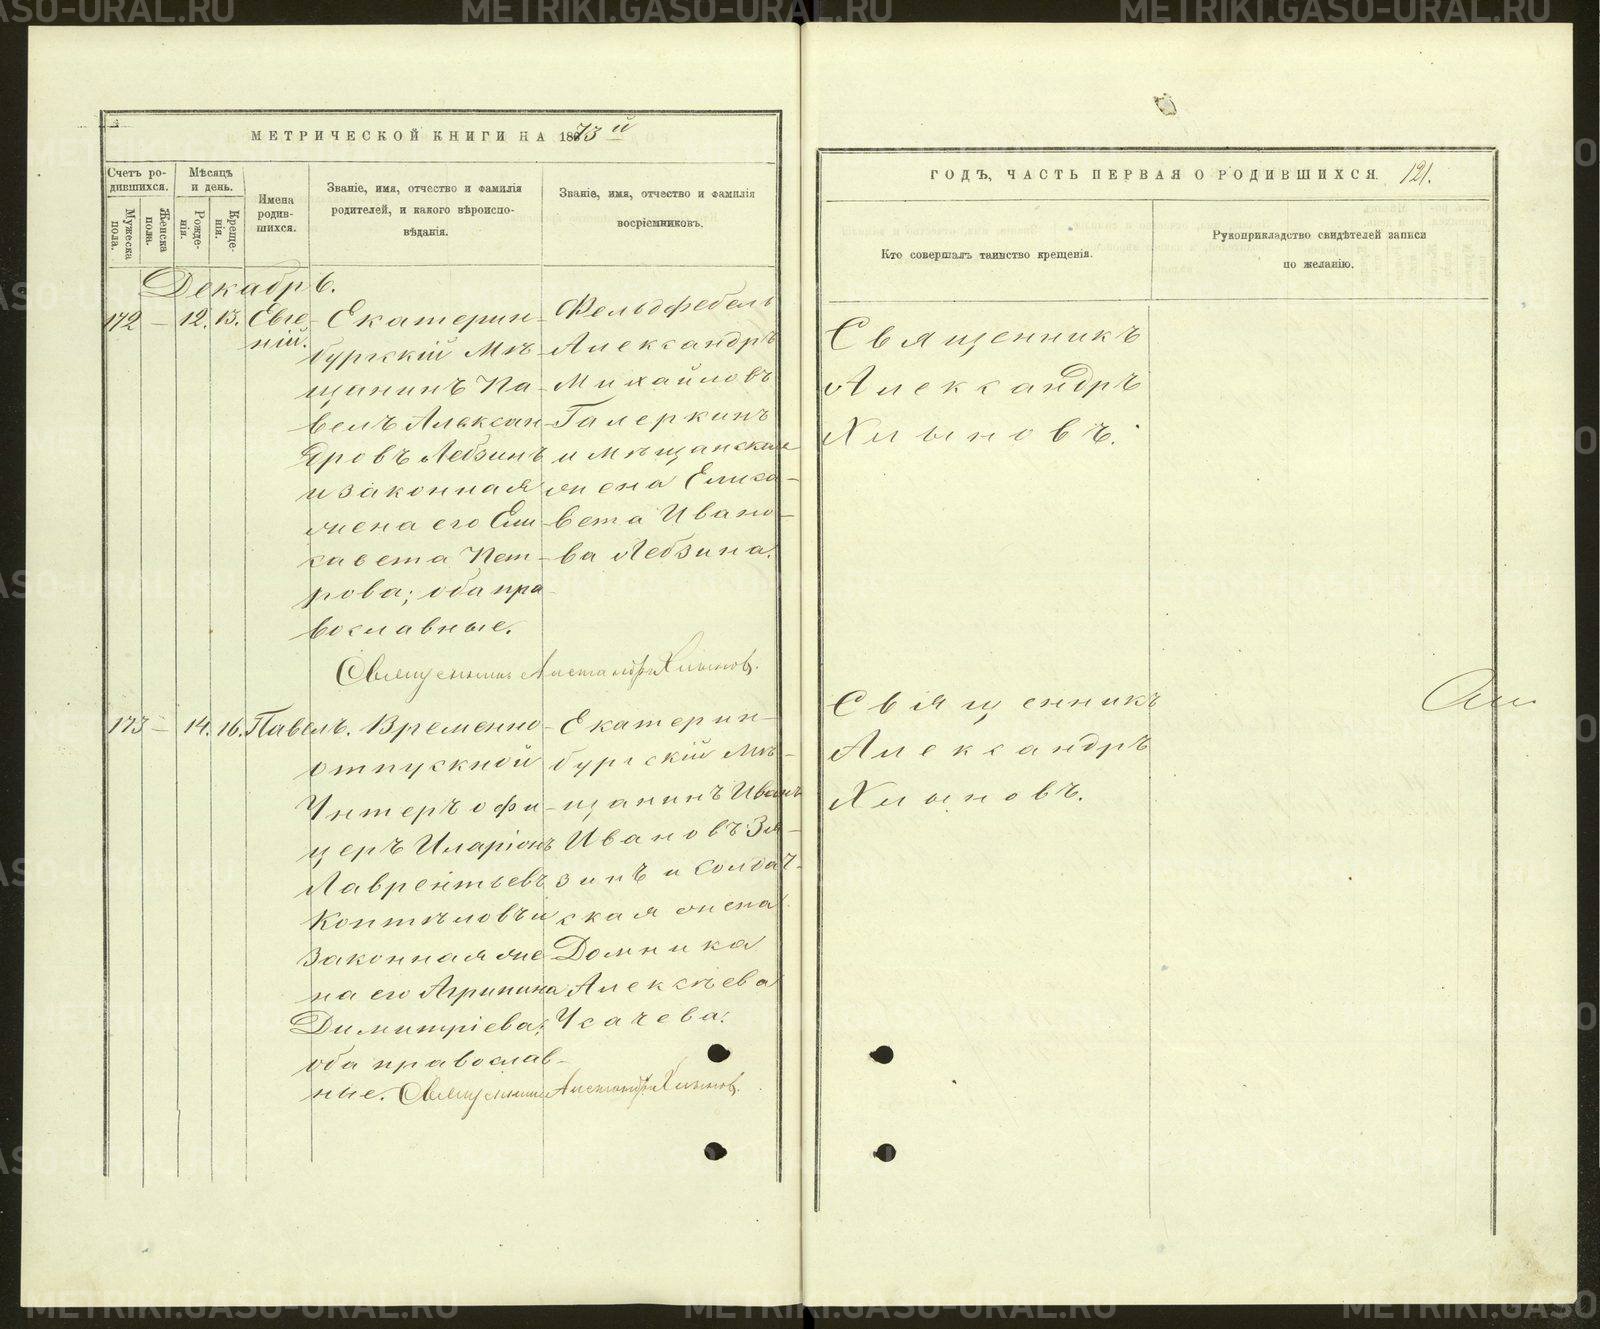 МЕТРИЧЕСКОЙ КНИГИ НА 1873 й
Счетъ ро-
дившихся.
Мужеска
пола.
Женска
пола.
Мѣсяцъ
и день.
Рожде-
нія.
Креще-
нія.
Имена
родив-
шихся.
Званіе, имя, отчество и фамилія
родителей, и какого вѣроиспо-
вѣданія.
Званіе, имя, отчество и фамилія
восріемниковъ.
Декабрь.
172 — 12. 13. Евге-
ній.
Екатерин-
бургскій Мѣ-
щанинъ Па-
велъ Алексан-
дровъ Лебзинъ
и законная
жена его Ели-
савета Пет-
рова; оба пра-
вославные.
Фельдфебель
Александръ
Михайловъ
Галеркинъ
и мѣщанская
жена Елиса-
вета Ивано-
ва Лебзина.
Священникъ Александръ Хлыновъ.
173 — 14. 16. Павелъ.
Временно-
отпускной
Унтеръ офи-
церъ Иларіонъ
Лаврентьевъ
Коптѣловъ и
законная же-
на его Агрипина
Димитріева;
оба православ-
ные.
Екатерин-
бургскій Мѣ-
щанинъ Иванъ
Ивановъ Зя-
зинъ и солдат-
ская жена
Домника
Алексѣева
Усачева.
Священникъ Александръ Хлыновъ.
ГОДЪ, ЧАСТЬ ПЕРВАЯ О РОДИВШИХСЯ 121.
Кто совершалъ таинство крещенія.
Рукоприкладство свидѣтелей записи
по желанію.
Священникъ
Александръ
Хлыновъ.
Священникъ
Александръ
Хлыновъ.
METRIKI.GASO-URAL.RU